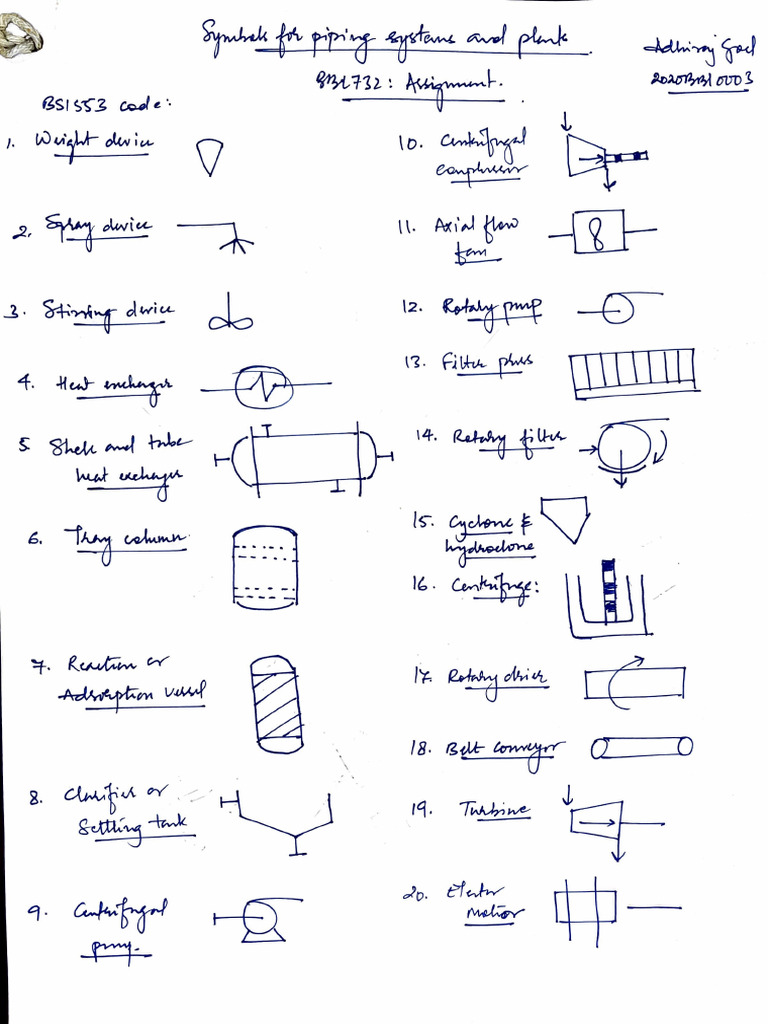 Symbols for piping systems and plants
Adhiraj Goel
2020BB10003
BBL732: Assignment.
BS1553 code:
1. Weight device
2. Spray device
3. Stirring device
4. Heat exchanger
5. Shell and tube
heat exchanger
6. Tray column
7. Reaction or
Adsorption vessel
8. Clarifier or
Settling tank
9. Centrifugal
pump.
10. Centrifugal
compressor
11. Axial flow
fan
8
12. Rotary pump
13. Filter press
14. Rotary filter
15. Cyclone &
hydroclone
16. Centrifuge:
17. Rotary drier
18. Belt conveyor
19. Turbine
20. Elector
motor